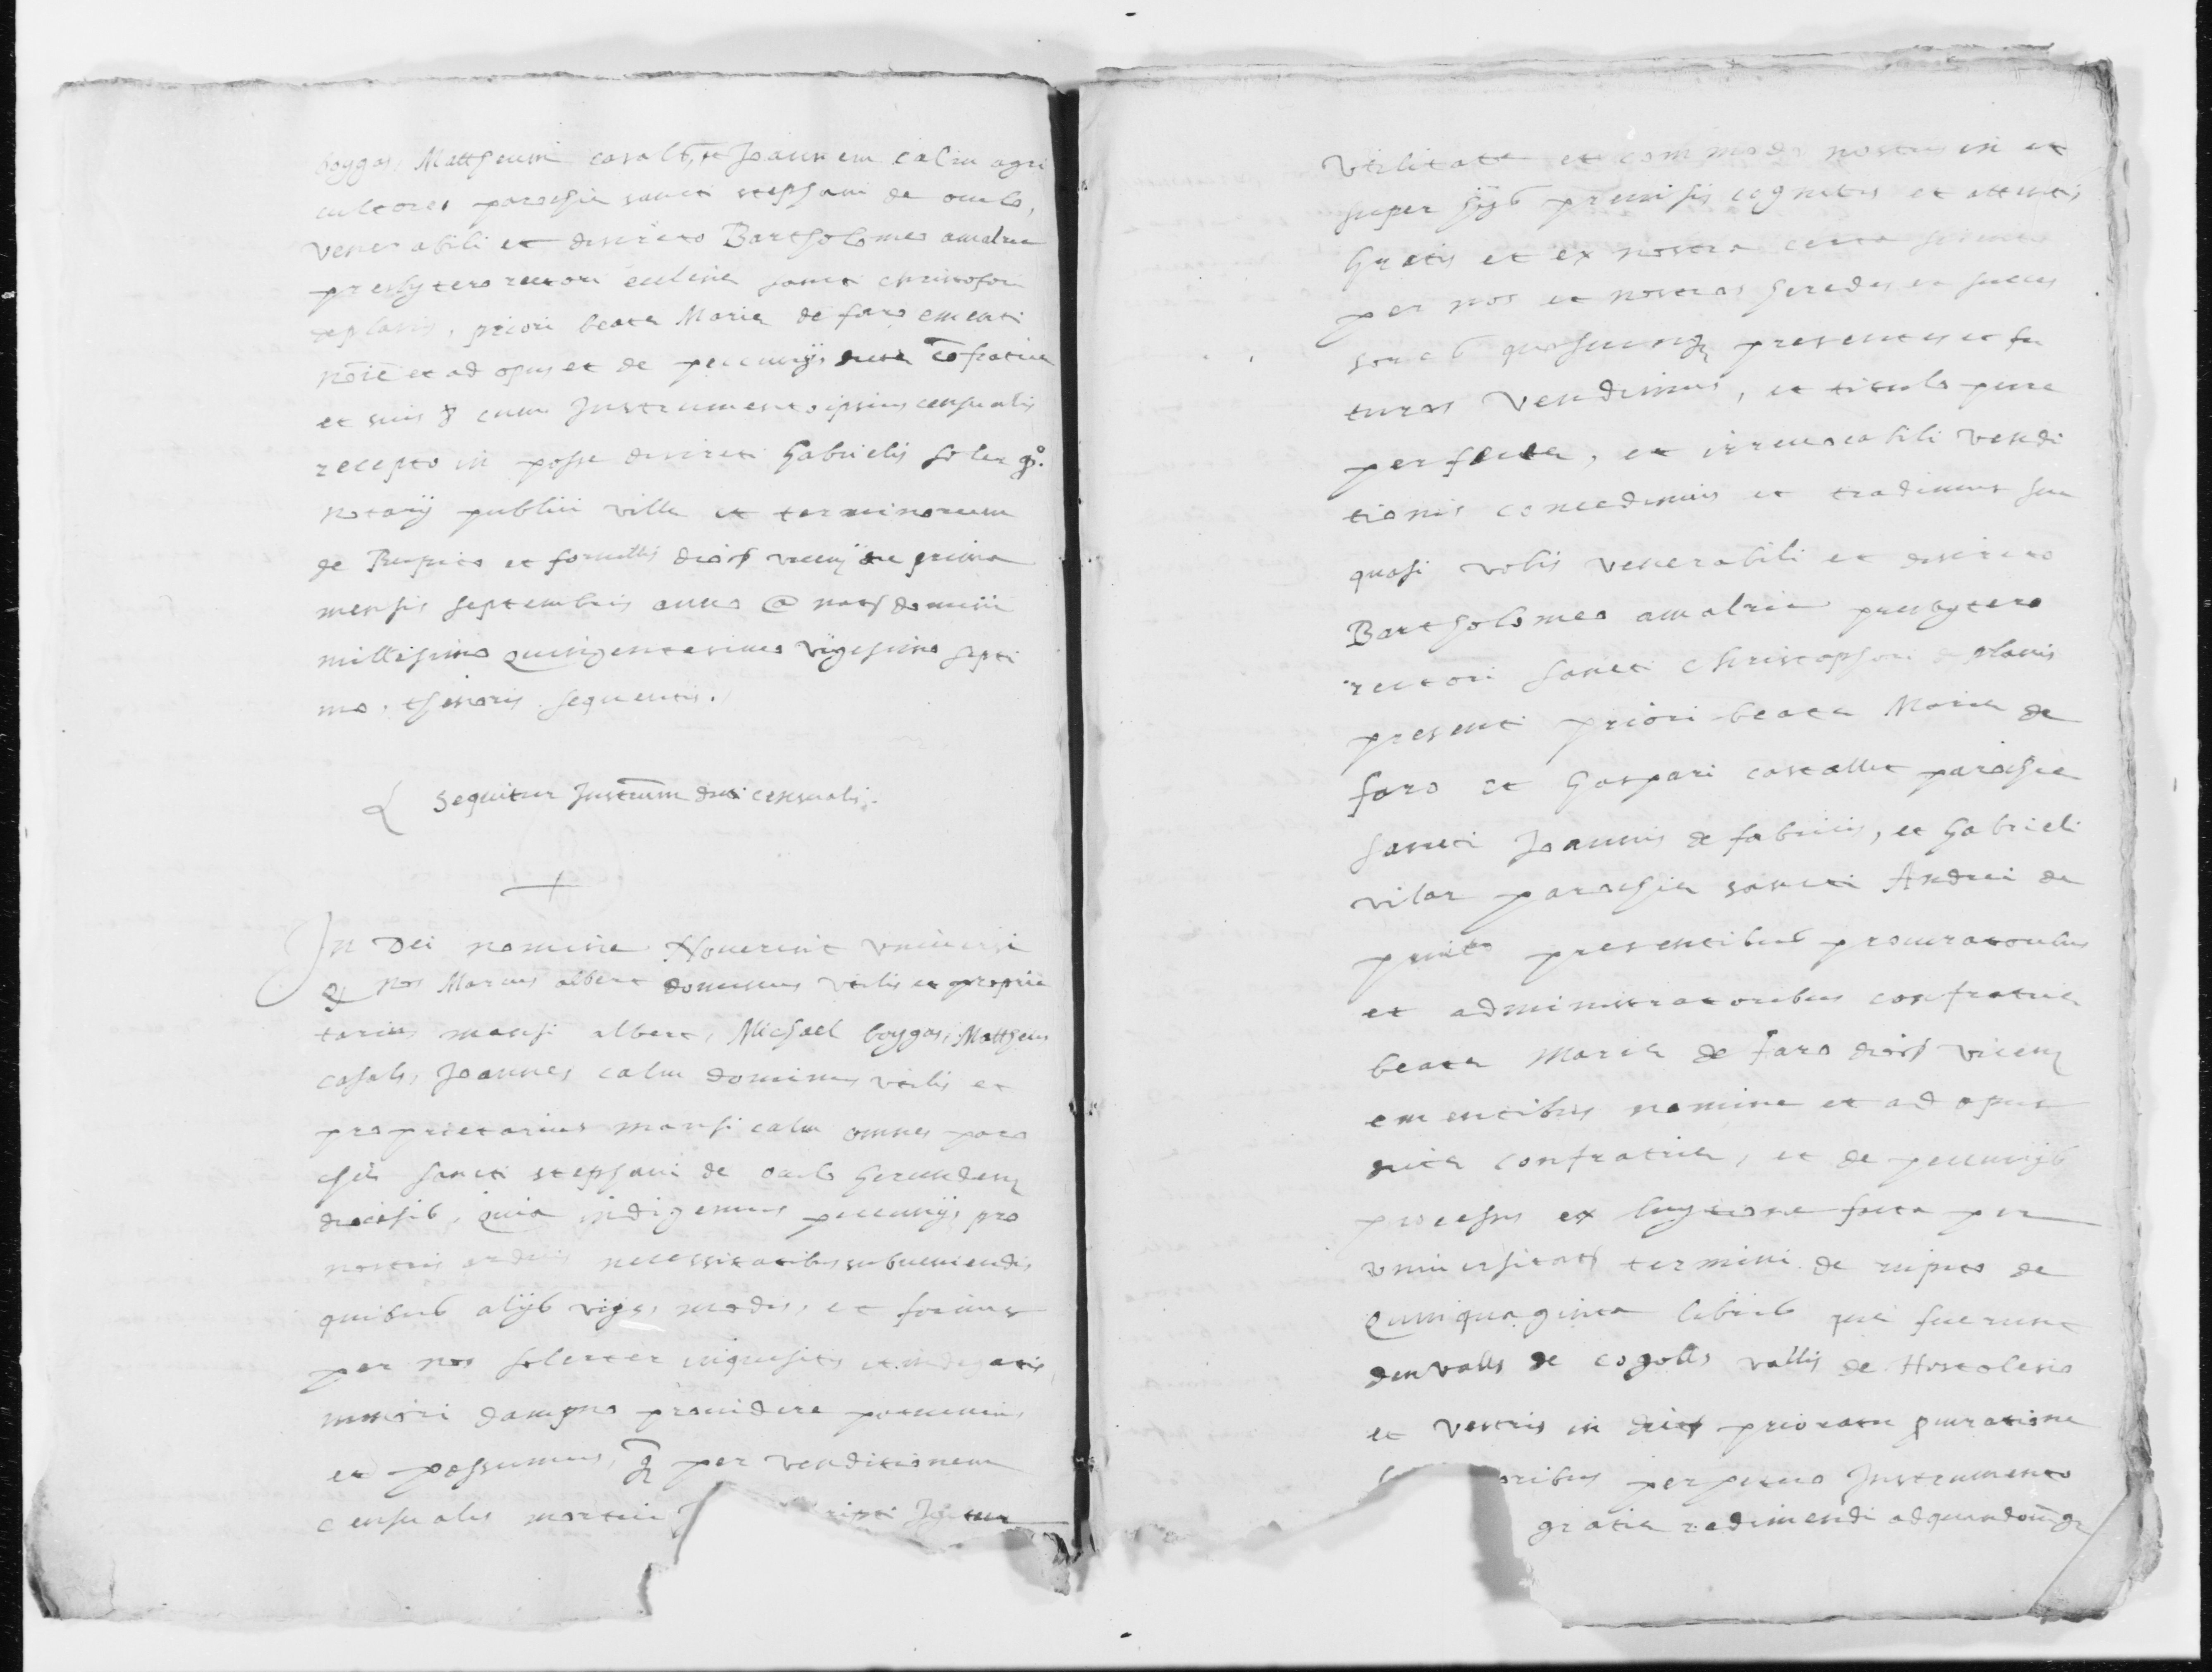 boygas, Mattheum casals, et Joannem calm agri
cultores parochie sancti stephani de
venerabili et discreto Bartholomeo amalric
presbytero rectori sancti christofori
priori beate Marie de faro ementi
noīe et ad opus et de peccunijs dicte cōfratrie
et suis & cum Instrumento ipsius censualis
recepto in posse discreti Gabrielis soler qͦ.
notarij publici ville et terminorum
de Rupito et fornellis die prima
mensis septembris anno @ domini
millesimo quingentesimo vigesimo septi
mo, thenoris sequentis.
Sequitur Instrum̄ censualis.
In Dei nomine Noverint universi
qͣ nos Marcus albert dominus utilis et proprie
tarius mansi albert, Michael boygas, Mattheus
casals, Joannes calm dominus utilis et
proprietarius mansi calm omnes paro
chie sancti stephani de Gerunden
diocesis, Quia indigemus peccunijs pro
nostris necessitatibus subveniendis
quibus alijs vijs, modis, et formis
per nos solerter inquisitis et indagatis,
minori dampno providere potuimus
et possumus, q̄ per venditionem
censualis mortui Igitur
utilitate et commodo nostris in et
super hijs premisis cognitis et attentis
Gratis et ex nostra certa
per nos et nostros heredes et succes
sores quoscunq presentes et fu
turos Vendimus, et titulo pure
perfecte, et irrevocabili vendi
tionis concedimus et tradimus seu
quasi vobis venerabili et discreto
Bartholomeo amalric presbytero
rectori sancti Christophori planis
presenti priori beate Marie de
faro et Gaspari castallet parochie
sancti Joannis de fabricis, et Gabrieli
vilar parochie sancti Andree de
presentibus procuratoribus
et administratoribus confratrie
beate Marie de faro vicen
ementibus nomine et ad opus
dicte confratrie, et de peccunijs
processis ex luytione facta per
universitatē termini de rupito de
Quinquaginta libris que fuerunt
den valls de cogolls vallis de Hostolesio
et vestris in prioratu
oribus perpetuo Instrumento
gratia redimendi